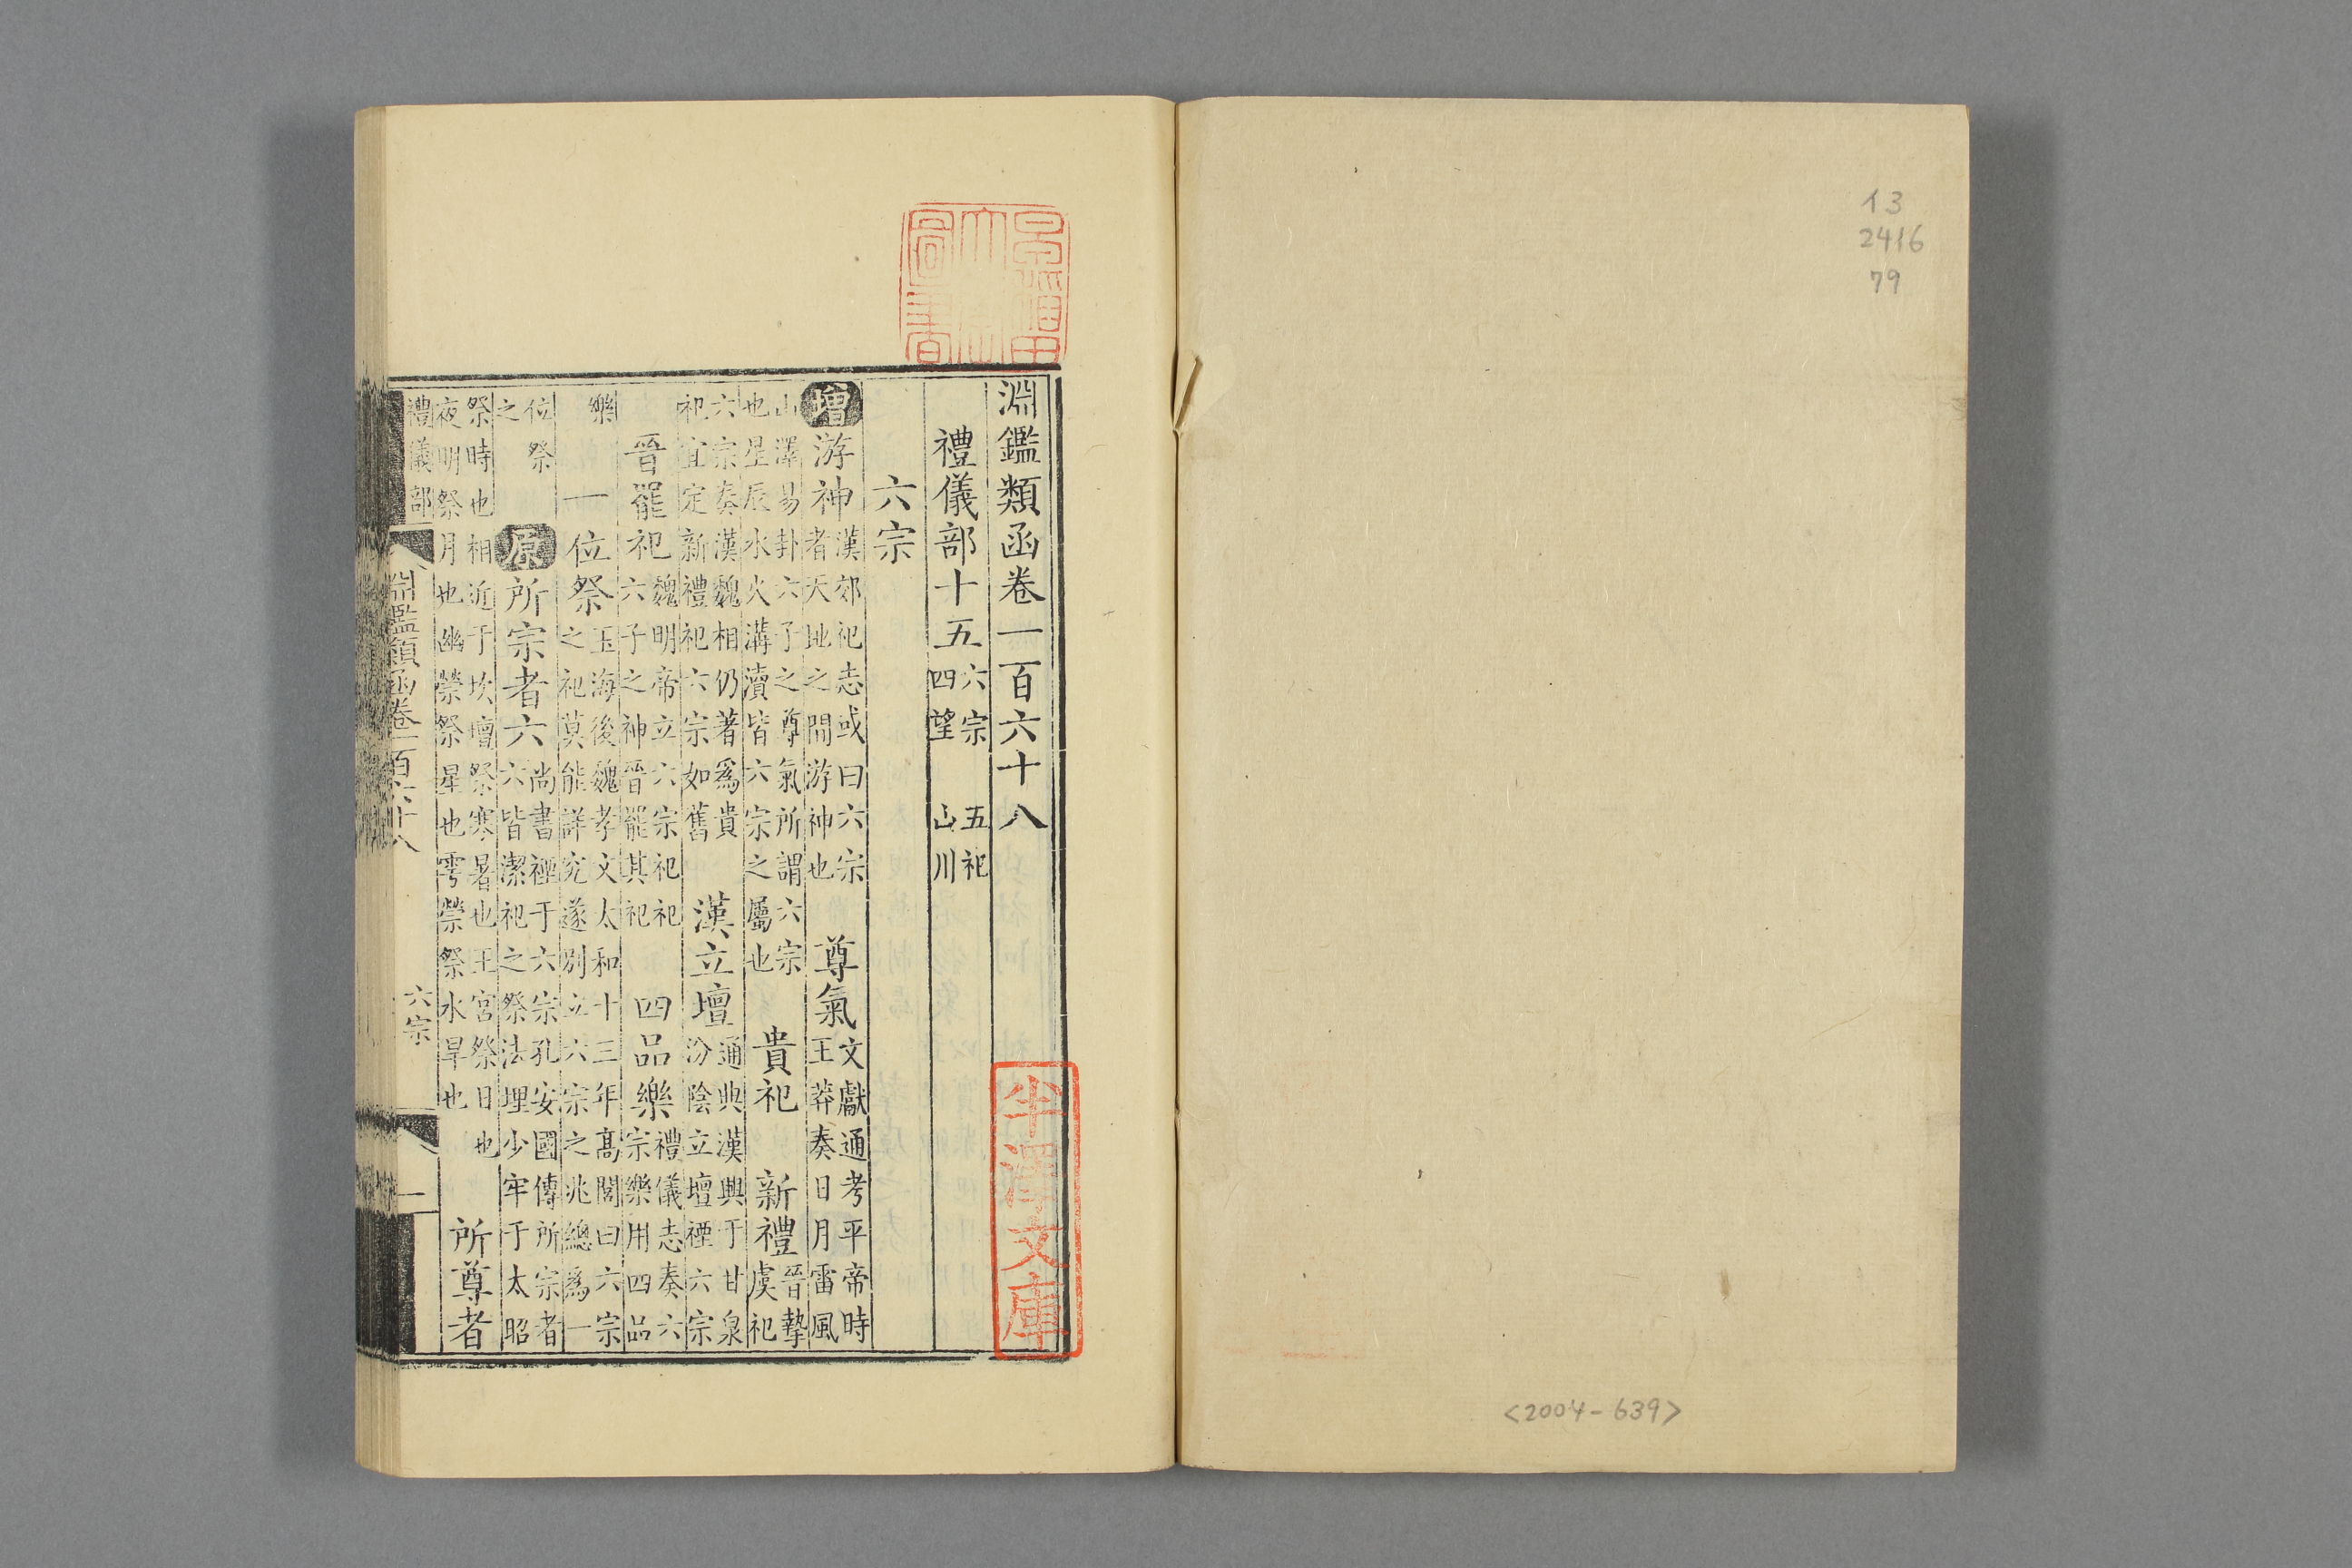 イ3
2416
79
<2004-639>
淵鑑類函卷一百六十八
禮儀部十五 六宗 五祀 四望 山川
六宗
增 游神 漢郊祀志或曰六宗者天地之間游神也 尊氣 文獻通考平帝時王莽奏日月雷風
山澤易卦六子之尊氣所謂六宗也星辰水火溝瀆皆六宗之屬也 貴祀 新禮 晉摯虞祀
六宗奏漢魏相仍著爲貴祀宜定新禮祀六宗如舊 漢立壇 通典漢興于甘泉汾陰立壇禋六宗
晉罷祀 魏明帝立六宗祀祀六子之神晉罷其祀 四品樂 禮儀志奏六宗樂用四品
樂 一位祭 玉海後魏孝文太和十三年高閭曰六宗之祀莫能詳究遂別立六宗之兆總爲一
位祭之 原 所宗者六 尚書禋于六宗孔安國傳所宗者六皆潔祀之祭法埋少牢于太昭
祭時也相近于坎壇祭寒暑也王宮祭日也夜明祭月也幽禜祭星也雩禜祭水旱也 所尊者
禮儀部 淵鑑類函卷一百六十八 六宗 一
半澤文庫